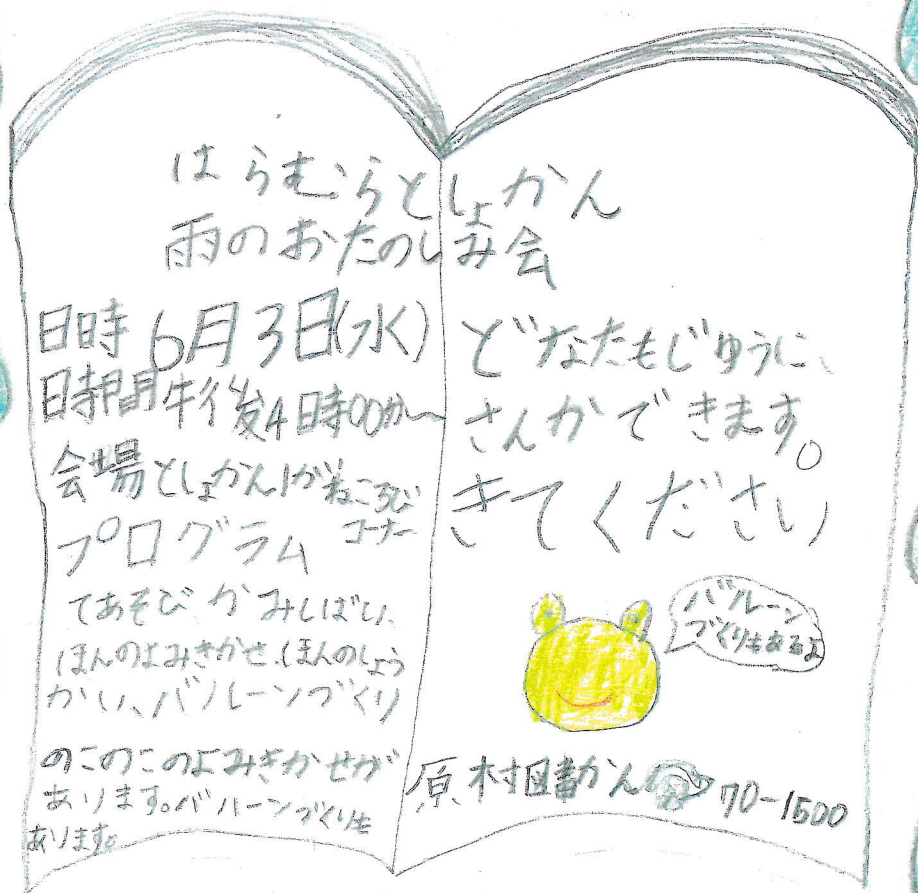 はらむらとしょかん
雨のおたのしみ会
日時 6月3日(水)
日時間午後4時00分〜
会場としょかん1かいねころび
コーナー
プログラム
てあそび、かみしばい、
ほんのよみきかせ、ほんのしょう
かい、バルーンづくり
のこのこのよみきかせが
あります。バルーンづくりも
あります。
どなたもじゆうに、
さんかできます。
きてください
バルーン
づくりもあるよ
原村図書かん
70-1500